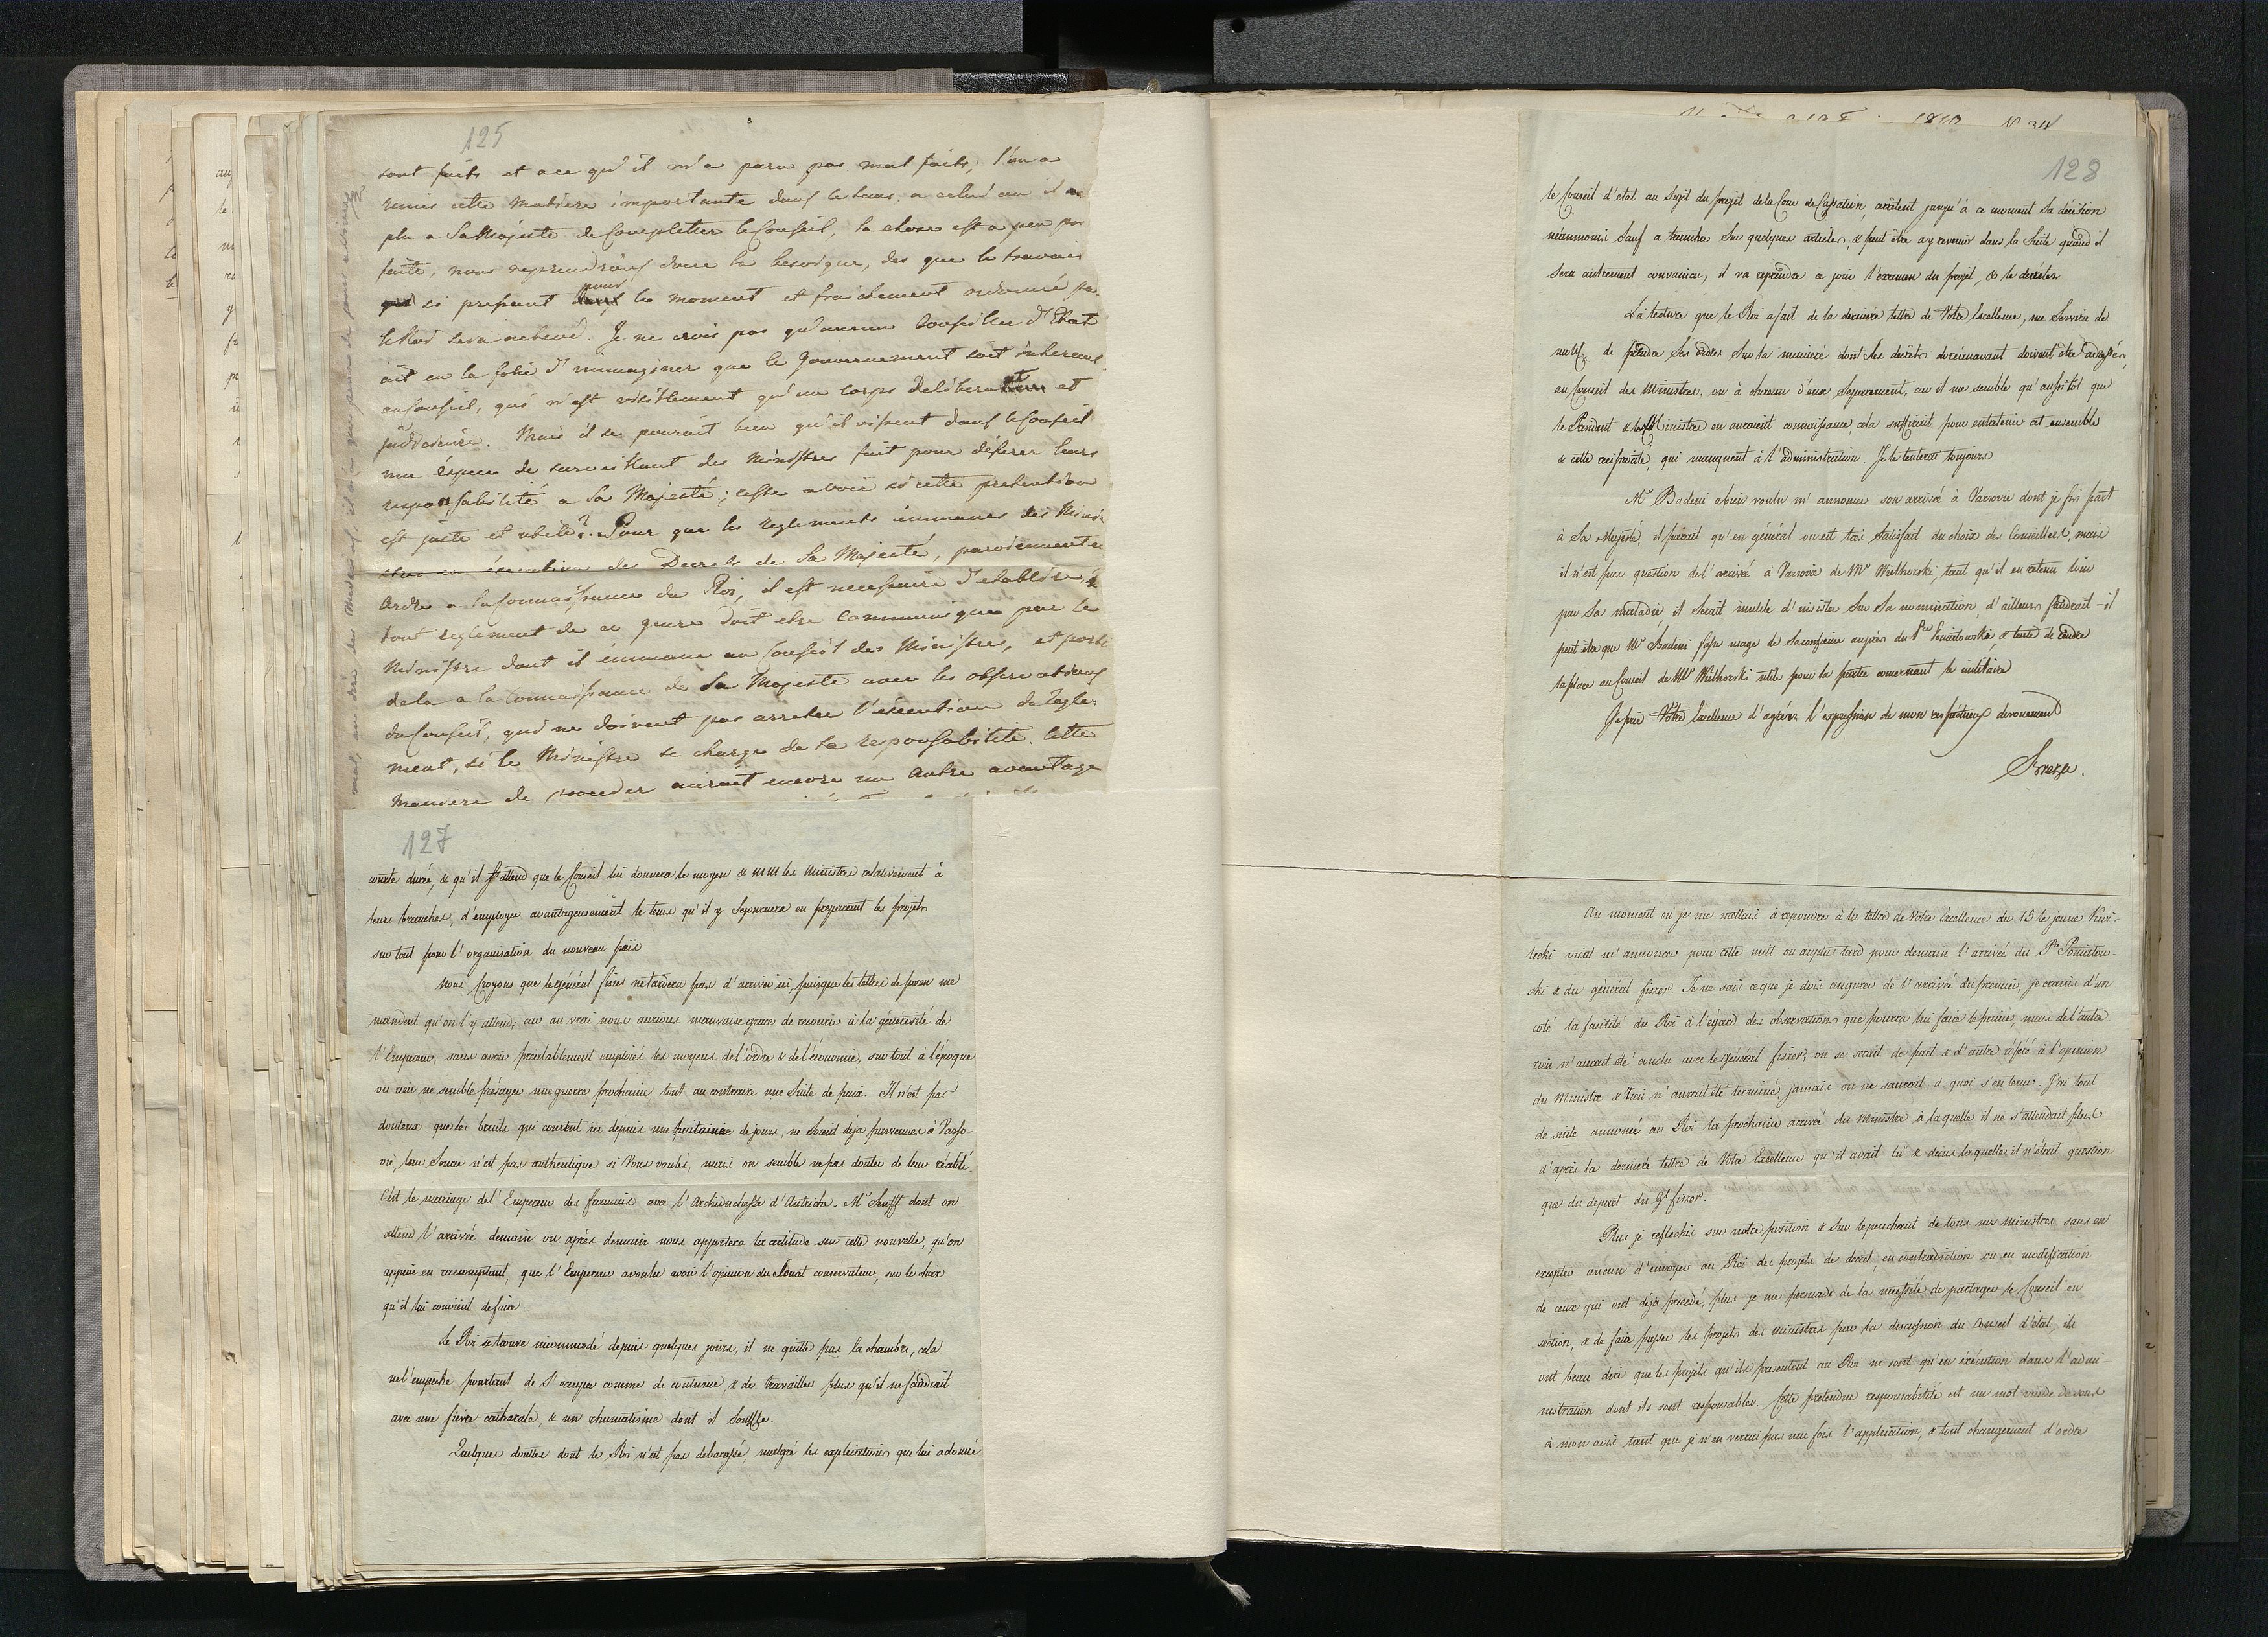 125
sont faits et a ce qu'il m'a paru pas mal faits, l'on a
remis cette matiere importante dans le tems, a celui ou il a
plu a Sa Majesté de Completter le Conseil, la chose est a peu pres
faite, nous reprendrons donc la besoigne, des que le travail
si pressant pour le moment et fraichement ordonné par
le Roi sera achevé. Je ne crois pas qu'aucun Conseiller d'Etat
ait eu la folie d'immaginer que le Gouvernement soit inherent
au Conseil, qui n'est visiblement qu'un corps deliberant et
judiciaire. Mais il se pourait bien qu'il vissent dans le Conseil
une éspece de surveillant des Ministres fait pour déferer leurs
responsabilité a Sa Majesté; reste a voir si cette pretention
est juste et utile? Pour que les reglements emmanés des Mini-
stres en éxecution des Decrets de Sa Majesté, parviennent en
ordre a la Connaissance du Roi, il est necessaire d'etablir, q
tout reglement de ce genre doit etre communiqué par le
Ministre dont il émmane au Conseil des Ministres, et porté
de la a la Connaissance de Sa Majesté avec les observations
du Conseil, qui ne doivent pas arreter l'éxecution du regle-
ment, si le Ministre se charge de la responsabilité. Cette
Maniere de proceder auroit encore un autre avantage
127
courte durée, & qu'il s'attend que le Conseil lui donnera le moyen & MM les Ministres relativement à
leurs branches, d'employer avantageusement le tems qu'il y Sejournera en preparant les projets
sur tout pour l'organisation du nouveau païs
Nous Croyons que le Général fiszer ne tardera pas d'arriver ici, puisque les lettres de Posen me
mandent qu'on l'y attend; car au vrai nous aurions mauvaise grace de recourir à la générosité de
l'Empereur, sans avoir préalablement emploiés les moyens de l'ordre & de l'économie, sur tout à l'époque
ou rien ne semble présager une guerre prochaine tout au contraire une Suite de paix. Il n'est pas
douteux que les bruits qui courent ici depuis une huitaine de jours, ne Soient déja parvenues à Varso-
vie, leur Source n'est pas authentique si Vous voulés, mais on semble ne pas douter de leur réalité.
C'est le mariage de l'Empereur des francais avec l'Archiduchesse d'Autriche. Mr Senfft dont on
attend l'arrivée demain ou aprés demain nous apportera la certitude sur cette nouvelle, qu'on
appuie en raccomptant, que l'Empereur a voulu avoir l'opinion du Senat conservateur, sur le choix
qu'il lui convient de faire
Le Roi se trouve incommodé depuis quelques jours, il ne quitte pas la chambre, cela
ne l'empeche pourtant de S'occuper comme de coutume, & de travailler plus qu'il ne faudrait
avec une fiévre catharale, & un rhumatisme dont il Souffre.
Quelques doutes dont le Roi n'est pas debarassé, malgré les explications que lui a donné
128
le Conseil d'etat au Sujet du projet de la Cour de Cassation, arrêtent jusqu'à ce moment Sa décision
néanmoins Sauf a trancher Sur quelques articles, & peut être a y revenir dans la Suite quand il
Sera autrement convaincu, il va reprendre ce jour l'examen du projet, & le decréter
La lecture que le Roi a fait de la derniere lettre de Votre Excellence, me Servira de
motif de prendre Ses ordres Sur la maniere dont Ses decrets dorénavant doivent être adressés,
au Conseil des Ministres, ou à chacun d'eux Separement, car il me semble qu'aussitot que
le President & les Ministres en auraient connaissance, cela suffirait pour entretenir cet ensemble
& cette reciprocité, qui manquent à l'administration. Je le tenterai toujours
Mr Badeni a bien voulu m'annoncer son arrivée à Varsovie dont je fis part
à Sa Majesté, il parait qu'en général on est trés Satisfait du choix des Conseillers, mais
il n'est pas question de l'arrivée à Varsovie de Mr Wielhorski, tant qu'il en retenu loin
par Sa maladie il Serait inutile d'insister Sur Sa nomination, d'ailleurs faudrait-il
peut être que Mr Badeni fasse usage de Sa confiance auprés du Pce Poniatowski & tente de rendre
la place au Conseil de Mr Wielhorski utile pour la partie concernant le militaire
Je prie Votre Excellence d'agréer l'expression de mon respectueux devouement
Breza.
Au moment où je me mettais à repondre à la lettre de Votre Excellence du 15 le jeune Kwi-
lecki vient m'annoncer pour cette nuit ou auplus tard pour demain l'arrivée du Pce Poniatow-
ski & du général fiszer. Je ne sais ce que je dois augurer de l'arrivée du premier, je crains d'un
coté la facilité du Roi à l'égard des observations que pourra lui faire le prince, mais de l'autre
rien n'aurait été conclu avec le général fiszer, on se serait de part & d'autre référé à l'opinion
du Ministre & rien n'aurait été terminé, jamais on ne saurait à quoi s'en tenir. J'ai tout
de suite annoncé au Roi la prochaine arrivée du Ministre à laquelle il ne s'attendait plus
d'aprés la derniere lettre de Votre Excellence qu'il avait lû & dans laquelle il n'était question
que du depart du Gl fiszer.
Plus je reflechis sur notre position & sur le penchant de tous nos ministres sans en
excepter aucun d'envoyer au Roi des projets de decret, en contradiction ou en modification
de ceux qui ont déja precedé, plus je me persuade de la necessité de partager le Conseil en
section, & de faire passer les projets des ministres par la discussion du Conseil d'état, ils
ont beau dire que les projets qu'ils presentent au Roi ne sont qu'en éxécution dans l'admi-
nistration dont ils sont responsables. Cette pretendue responsabilité est un mot vuide de sens
à mon avis tant que je n'en verrai pas une fois l'application, & tout changement d'ordre